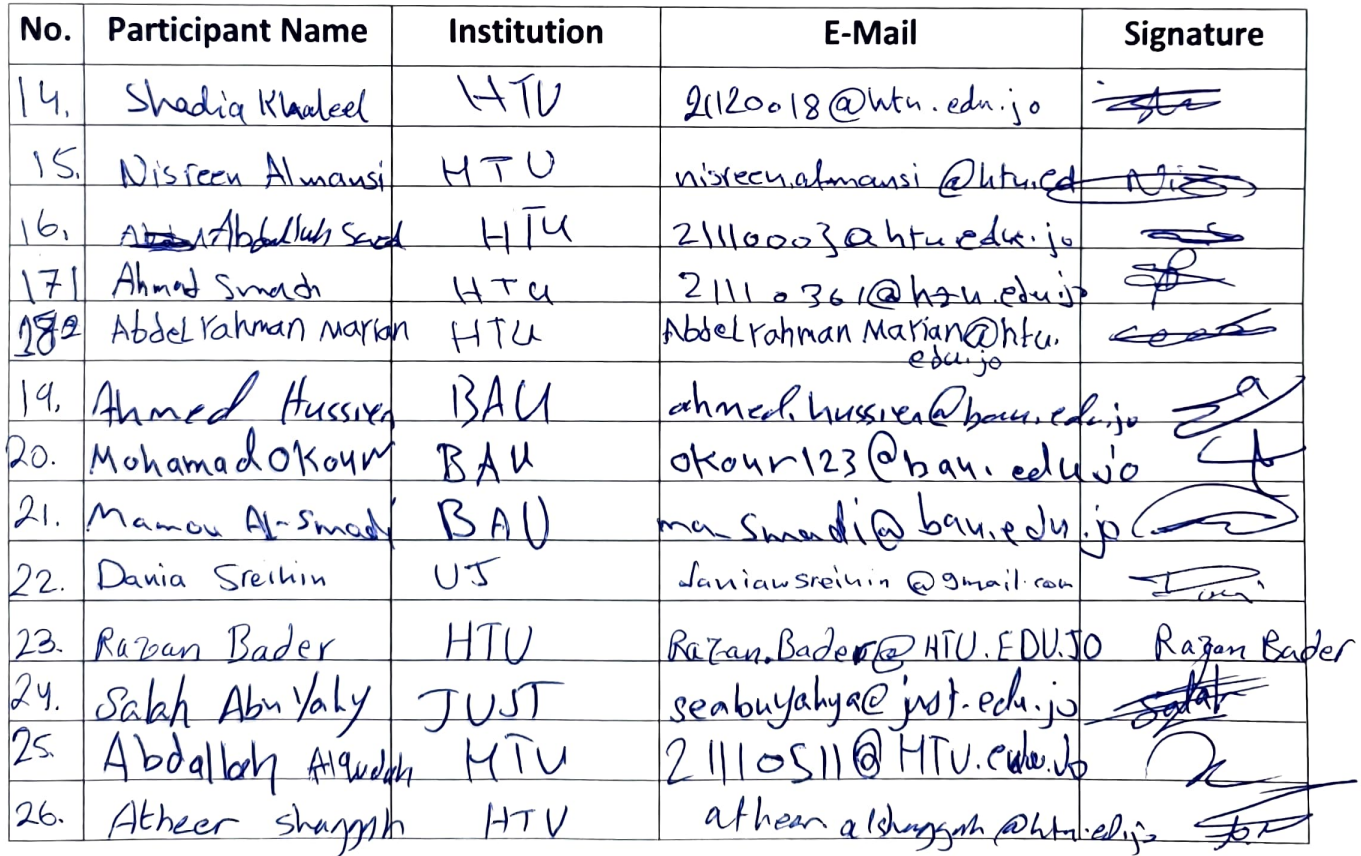 No. Participant Name Institution E-Mail Signature
14. Shadia Khaleel HTU 21120018@htu.edu.jo
15. Nisreen Almansi HTU nisreen.almansi@htu.ed
16. Abdullah Saed HTU 21110003@htu.edu.jo
17 Ahmad Smadi HTU 21110361@htu.edu.jo
18 Abdelrahman Marian HTU Abdelrahman Marian@htu.
edu.jo
19. Ahmed Hussien BAU ahmed.hussien@bau.edu.jo
20. Mohamad Okour BAU okour123@bau.edu.jo
21. Mamou Al-Smadi BAU ma_smadi@bau.edu.jo
22. Dania Sreihin UJ daniawsreihin@gmail.com
23. Razan Bader HTU Razan.Bader@HTU.EDU.JO Razan Bader
24. Salah Abu Yahy JUST seabuyahya@just.edu.jo Salah
25. Abdallah Alqudah HTU 21110511@HTU.edu.Jo
26. Atheer HTU